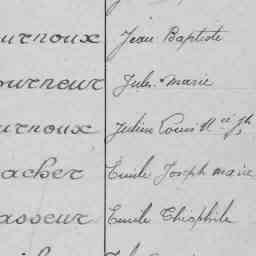 urnoux Jean Baptiste
ourneur Jules Marie
urnoux Julien Louis
acher Emile Joseph marie
asseur Emile Théophile